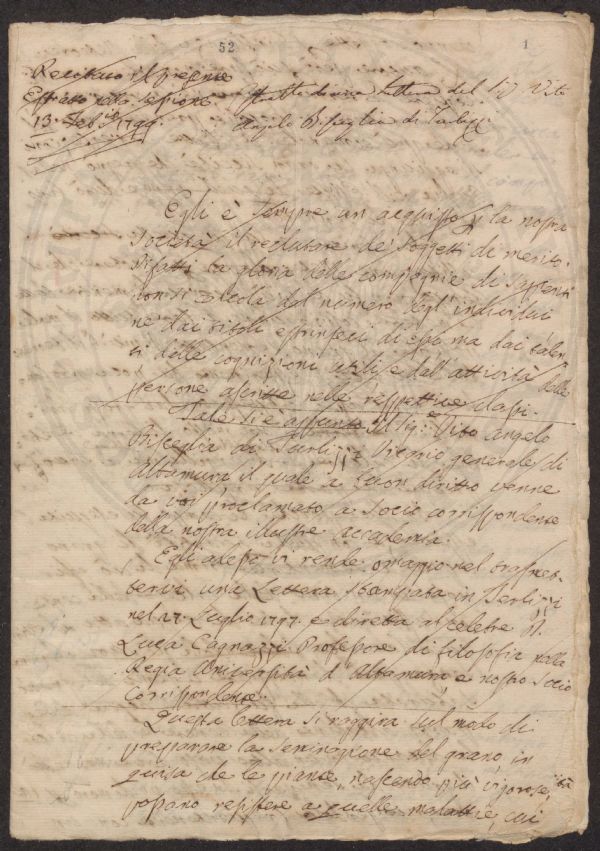 52 1
Recitato il presente
Estratto nella sessione
13. Feb.° 1799.
Estratto di una lettera del Sig. Vito
Angelo Bisceglia di Terlizzi
Egli è sempre un acquisto per la nostra
Società il reclutare de' soggetti di merito.
Difatti la gloria delle compagnie di Sapienti
non si calcola dal numero degl' individui
nè dai titoli estrinseci di essi, ma dai talen
ti delle cognizioni utili, e dall'attività delle
persone ascritte nelle rispettive classi.
Tale si è appunto il Sig.r Vito Angelo
Bisceglia di Terlizzi Vicario generale di
Altamura il quale a buon diritto venne
da voi proclamato a Socio corrispondente
della nostra illustre accademia.
Egli adesso vi rende omaggio nel trasmet-
tervi una Lettera stampata in Terlizzi
nel 27. Luglio 1797. e diretta al celebre D.
Luca Cagnazzi Professore di filosofia nella
Regia Università d'Altamura, e nostro Socio
Corrispondente.
Questa lettera si raggira sul modo di
preparare la seminazione del grano, in
guisa che le piante, nascendo più vigorose,
possano resistere a quelle malattie, cui